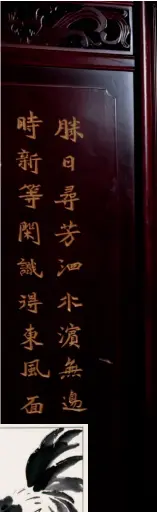 勝日尋芳泗水濱無邊
時新等閑識得東風面